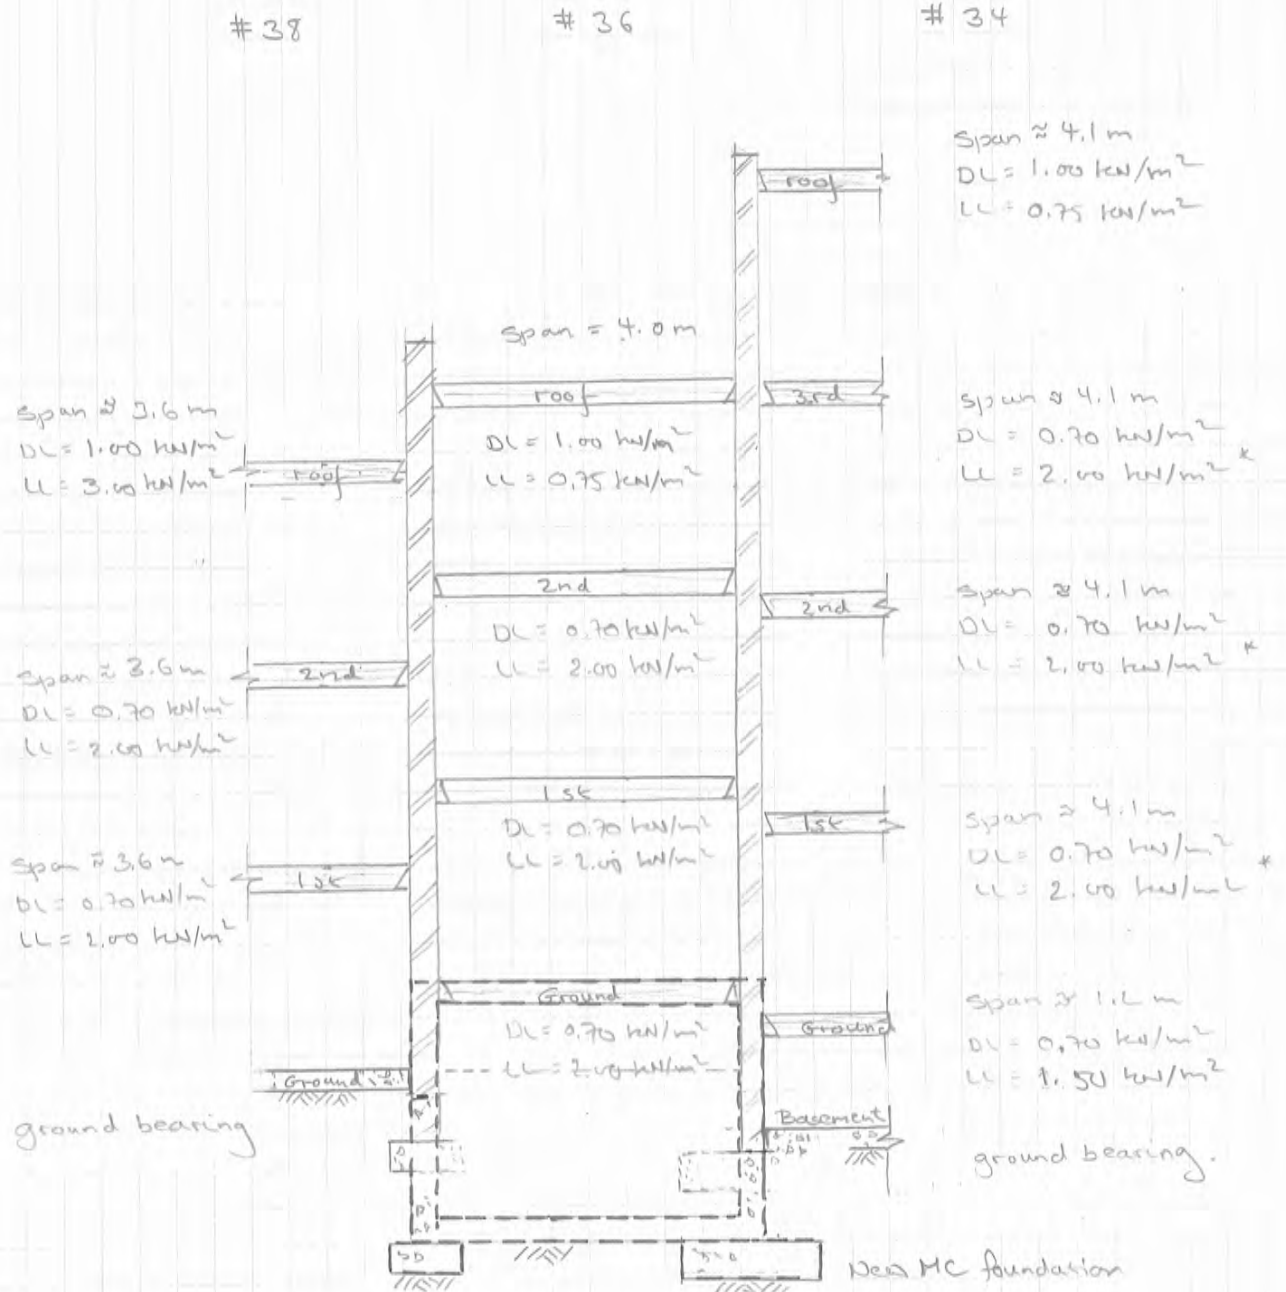 # 38
# 36
# 34
Span ≈ 4.1 m
DL = 1.00 kN/m²
LL = 0.75 kN/m²
roof
Span = 4.0 m
Span ≈ 3.6 m
DL = 1.00 kN/m²
LL = 3.00 kN/m²
roof
roof
DL = 1.00 kN/m²
LL = 0.75 kN/m²
3rd
Span ≈ 4.1 m
DL = 0.70 kN/m²
LL = 2.00 kN/m² *
2nd
DL = 0.70 kN/m²
LL = 2.00 kN/m²
2nd
Span ≈ 4.1 m
DL = 0.70 kN/m²
LL = 2.00 kN/m² *
Span ≈ 3.6 m
DL = 0.70 kN/m²
LL = 2.00 kN/m²
2nd
1st
DL = 0.70 kN/m²
LL = 2.00 kN/m²
1st
Span ≈ 4.1 m
DL = 0.70 kN/m²
LL = 2.00 kN/m² *
Span ≈ 3.6 m
DL = 0.70 kN/m²
LL = 2.00 kN/m²
1st
Ground
DL = 0.70 kN/m²
LL = 2.00 kN/m²
Ground
Span ≈
DL = 0.70 kN/m²
LL = 1.50 kN/m²
Ground
ground bearing
Basement
ground bearing.
New MC foundation